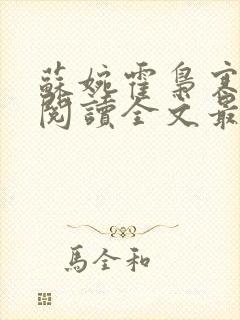 蘇婉霍梟寒
閱讀全文最
馬全和